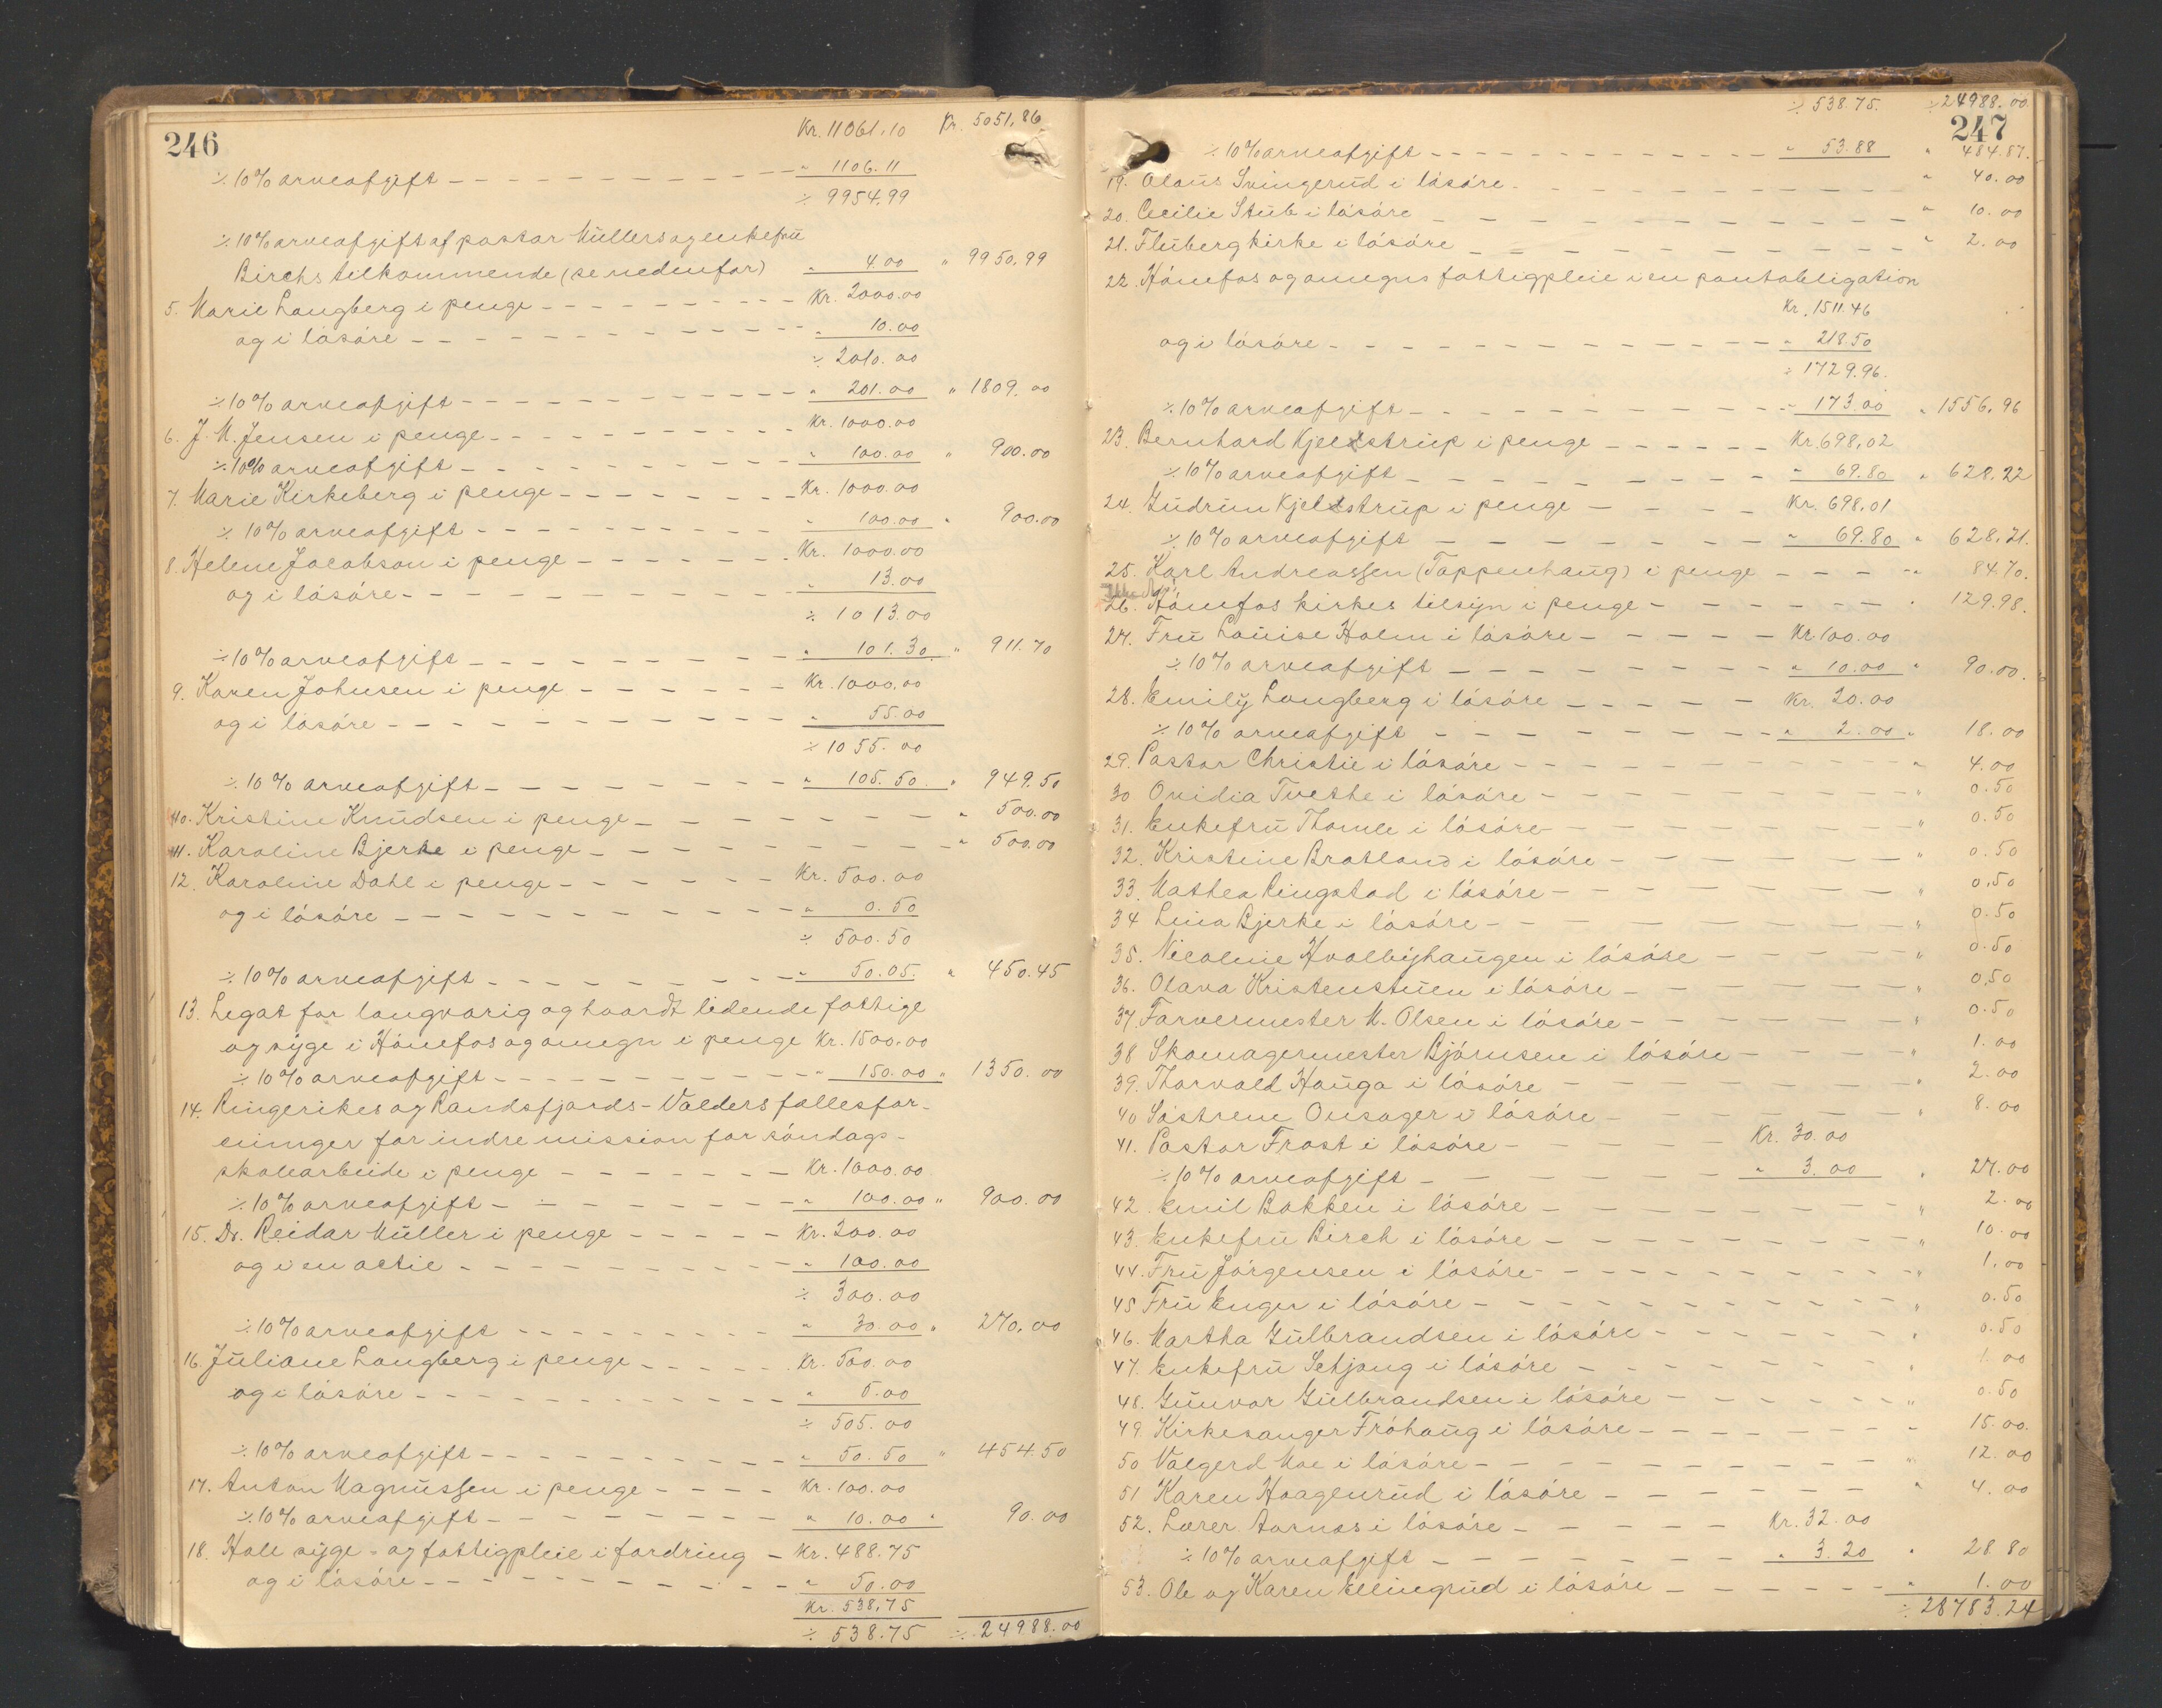 246
Kr. 11061.10 Kr. 5051.86
÷ 10% arveafgift - - - " 1106.11
÷ 9954.99
÷ 10% arveafgift af pastor Müllers og enkefrü
Birchs tilkommende (se nedenfor) " 4.00 " 9950.99
5. Marie Langberg i penge - - - Kr. 2000.00
og i løsøre - - - " 10.00
÷ 2010.00
÷ 10% arveafgift - - - " 201.00 " 1809.00
6. J. M. Jensen i penge - - - Kr. 1000.00
÷ 10% arveafgift - - - " 100.00 " 900.00
7. Marie Kirkeberg i penge - - - Kr. 1000.00
÷ 10% arveafgift - - - " 100.00 " 900.00
8. Helene Jacobson i penge - - - Kr. 1000.00
og i løsøre - - - " 13.00
÷ 1013.00
÷ 10% arveafgift - - - " 101.30 " 911.70
9. Karen Johnsen i penge - - - Kr. 1000.00
og i løsøre - - - " 55.00
÷ 1055.00
÷ 10% arveafgift - - - " 105.50 " 949.50
10. Kristine Knüdsen i penge - - - " 500.00
11. Karoline Bjerke i penge - - - " 500.00
12. Karoline Dahl i penge - - - Kr. 500.00
og i løsøre - - - " 0.50
÷ 500.50
÷ 10% arveafgift - - - " 50.05. " 450.45
13. Legat for langvarig og haardt lidende fattige
og syge i Hønefos og omegn i penge Kr. 1500.00
÷ 10% arveafgift - - - " 150.00 " 1350.00
14. Ringerikes og Randsfjords-Valders fællesfor-
eninger for indre mission for søndags-
skolearbeide i penge - - - Kr. 1000.00
÷ 10% arveafgift - - - " 100.00 " 900.00
15. Dr. Reidar Müller i penge - - - Kr. 200.00
og i en actie - - - " 100.00
÷ 300.00
÷ 10% arveafgift - - - " 30.00 " 270.00
16. Jüliane Langberg i penge - - - Kr. 500.00
og i løsøre - - - " 5.00
÷ 505.00
÷ 10% arveafgift - - - " 50.50 " 454.50
17. Anton Magnüssen i penge - - - Kr. 100.00
÷ 10% arveafgift - - - " 10.00 " 90.00
18. Hole syge- og fattigpleie i fordring - Kr. 488.75
og i løsøre - - - " 50.00
Kr. 538.75
÷ 538.75 ÷ 24988.00
÷ 538.75. ÷ 24988.00
247
÷ 10% arveafgift - - - " 53.88 " 484.87.
19. Olaüs Svingerüd i løsøre - - - " 40.00
20. Cecilie Stüb i løsøre - - - " 10.00
21. Flüberg kirke i løsøre - - - " 2.00
22. Hønefos og omegns fattigpleie i en pantobligation
Kr. 1511.46
og i løsøre - - - " 218.50
÷ 1729.96.
÷ 10% arveafgift - - - " 173.00 " 1556.96
23. Bernhard Kjelstrüp i penge - - - Kr. 698.02
÷ 10% arveafgift - - - " 69.80 " 628.22
24. Güdrün Kjelstrüp i penge - - - Kr. 698.01
÷ 10% arveafgift - - - " 69.80 " 628.21.
25. Karl Andreassen (Tappenhaüg) i penge - - - " 84.70.
26. Hønefos kirkes tilsyn i penge - - - " 129.98.
27. Frü Loüise Holm i løsøre - - - Kr. 100.00
÷ 10% arveafgift - - - " 10.00 " 90.00.
28. Emily Langberg i løsøre - - - Kr. 20.00
÷ 10% arveafgift - - - " 2.00 " 18.00
29. Pastor Christie i løsøre - - - " 4.00
30 Ovidia Tvethe i løsøre - - - " 0.50
31. Enkefrü Thomle i løsøre - - - " 0.50
32. Kristine Bratland i løsøre - - - " 0.50
33. Mathea Ringstad i løsøre - - - " 0.50
34 Lina Bjerke i løsøre - - - " 0.50
35. Nicoline Hvalbyhaügen i løsøre - - - " 0.50
36. Olava Kristenstüen i løsøre - - - " 0.50
37. Farvermester M. Olsen i løsøre - - - " 0.50
38 Skomagermester Bjørnsen i løsøre - - - " 1.00
39. Thorvald Haüga i løsøre - - - " 2.00
40 Søstrene Onsager i løsøre - - - " 8.00
41. Pastor Frost i løsøre - - - Kr. 30.00
÷ 10% arveafgift - - - " 3.00 " 27.00
42. Emil Bakken i løsøre - - - " 2.00
43. Enkefrü Birch i løsøre - - - " 10.00
44. Frü Jørgensen i løsøre - - - " 1.00
45 Frü Enger i løsøre - - - " 0.50
46. Martha Gülbrandsen i løsøre - - - " 0.50
47. Enkefrü Setjang i løsøre - - - " 1.00
48. Günvor Gülbrandsen i løsøre - - - " 0.50
49. Kirkesanger Frøhaüg i løsøre - - - " 15.00.
50 Valgerd Moe i løsøre - - - " 12.00
51 Karen Haagenrüd i løsøre - - - " 4.00
52. Lærer Aarnæs i løsøre - - - Kr. 32.00
÷ 10% arveafgift - - - " 3.20 " 28.80
53. Ole og Karen Ellingrüd i løsøre - - - " 1.00
÷ 28783.24